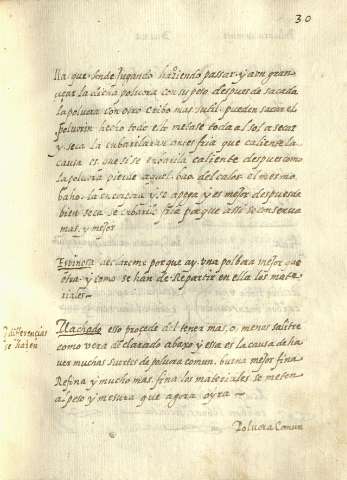 30
lla que anda jugando haziendo passar y aun gran
uçar la dicha poluora con su peso despues de sacada
la poluora con otro cribo mas sutil pueden sacar el
poluorin hecho todo esto metase toda al sol a secar
y seca la enbarilaran antes fria que caliente la
causa es que si se enbarila caliente despues como
la poluora pierde aquel bao del calor el mesmo
baho la y se apega y es mejor despues de
bien seca se enbarile fria porque assi se conserua
mas y mejor
Espinosa declareme porque ay una polbora mejor que
otra y como se han de Repartir en ella los mate
riales
differencias
se hazen
Machado esso procede del tener mas o menos salitre
como vera declarado abaxo y essa es la causa de ha
uer muchas suertes de poluora comun buena mejor fina
Refina y mucho mas fina los materiales se meten
al peso y mesura que agora oyra
Poluora Comun